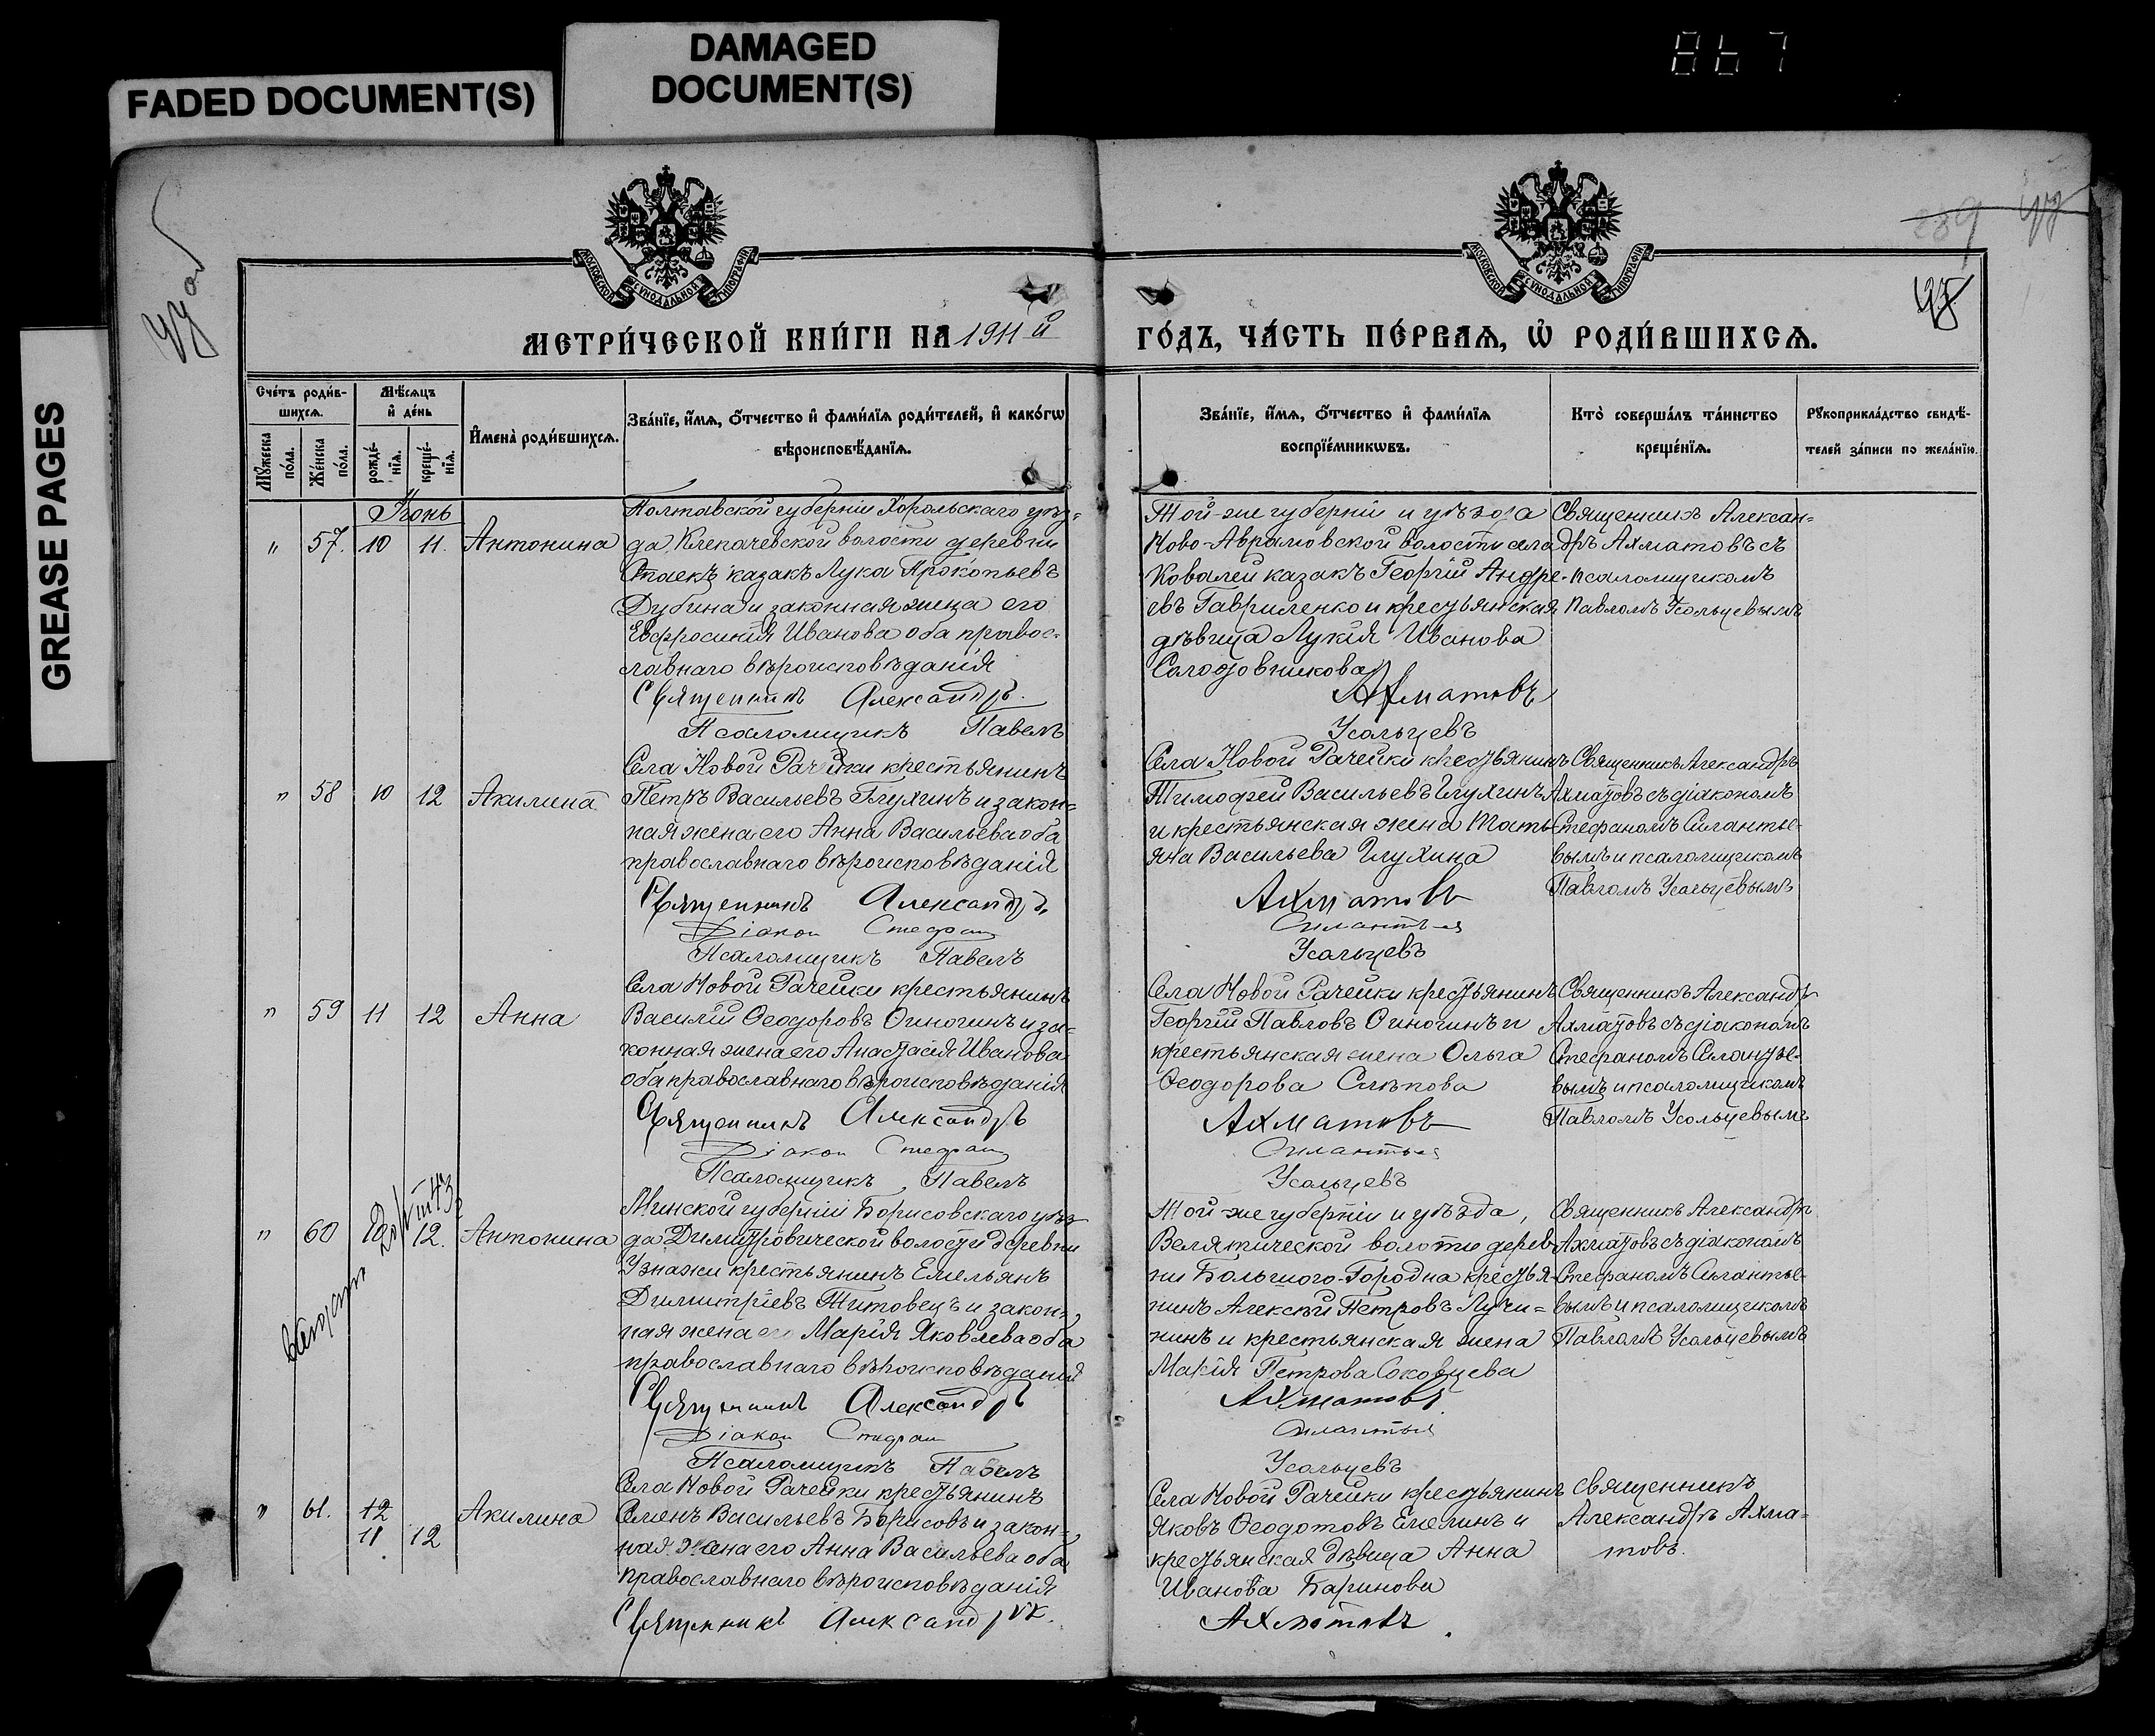 DAMAGED
DOCUMENT(S)
FADED DOCUMENT(S)
GREASE PAGES
867
МОСКОВСКОЙ СѴНОДАЛЬНОЙ ТИПОГРАФІИ
МОСКОВСКОЙ СѴНОДАЛЬНОЙ ТИПОГРАФІИ
239
МЕТРИ́ЧЕСКОЙ КНИ́ГИ НА 1911й
ГО́ДЪ, ЧА́СТЬ ПЕ́РВАѦ, Ѽ РОДИ́ВШИХСѦ.
Сче́тъ роди́в-
шихсѧ.
Мꙋжеска по́ла.
Же́нска по́ла.
Мѣ́сѧцъ
и҆ де́нь
рожде́-нїѧ.
креще́-нїѧ.
И҆мена̀ роди́вшихсѧ.
Зва́нїе, и҆́мѧ, ѻ҆́тчество и҆ фами́лїѧ роди́телей, и҆ како́гѡ
вѣроисповѣ́данїѧ.
Зва́нїе, и҆́мѧ, ѻ҆́тчество и҆ фами́лїѧ
воспрїе́мникѡвъ.
Кто̀ соверша́лъ та́инство
креще́нїѧ.
Рꙋкоприкла́дство свидѣ́-
телей за́писи по жела́нїю.
Іюнь
" 57. 10 11. Антонина
Полтавской губерніи Хорольскаго уѣз-
да, Клепачевской волости деревни
казакъ Лука Прокопьевъ
Дубина и законная жена его
Евфросинія Иванова оба правос-
лавнаго вѣроисповѣданія
Священникъ Александръ
Псаломщикъ Павелъ
Той-же губерніи и уѣзда
Ново-Аврамовской волости села
Ковалей казакъ Георгій Андре-
евъ Гавриленко и крестьянская
дѣвица Лукія Иванова
Солодовникова
Ахматовъ
Усольцевъ
Священникъ Алексан=
дръ Ахматовъ съ
псаломщикомъ
Павломъ Усольцевымъ
" 58 10 12 Акилина
Села Новой Рачейки крестьянинъ
Петръ Васильевъ Глухинъ и закон=
ная жена его Анна Васильева оба
православнаго вѣроисповѣданія
Священникъ Александръ
Діакон Стефан
Псаломщикъ Павелъ
Села Новой Рачейки крестьянинъ
Тимофей Васильевъ Глухинъ
и крестьянская жена Тать-
яна Васильева Глухина
Ахматовъ
Силантьев
Усольцевъ
Священникъ Александръ
Ахматовъ съ діакономъ
Стефаномъ Силантье-
вымъ и псаломщикомъ
Павломъ Усольцевымъ
" 59 11 12 Анна
Села Новой Рачейки крестьянинъ
Василій Ѳеодоровъ Финогинъ и за-
конная жена его Анастасія Иванова
оба православнаго вѣроисповѣданія
Священникъ Александръ
Діакон Стефан
Псаломщикъ Павелъ
Села Новой Рачейки крестьянинъ
Георгій Павловъ Финогинъ и
крестьянская жена Ольга
Ѳеодорова Слѣпова
Ахматовъ
Силантьев
Усольцевъ
Священникъ Александръ
Ахматовъ съ діакономъ
Стефаномъ Силантье-
вымъ и псаломщикомъ
Павломъ Усольцевымъ
" 60 12. Антонина
Минской губерніи Борисовскаго уѣз-
да Димитровической волости деревни
Узнажи крестьянинъ Емельянъ
Димитріевъ Титовецъ и закон=
ная жена его Марія Яковлева оба
православнаго вѣроисповѣданія
Священникъ Александръ
Діакон Стефан
Псаломщикъ Павелъ
Той-же губерніи и уѣзда,
Велятической волости дерев-
ни Большого-Городна крестья-
нинъ Алексѣй Петровъ Лучи=
нинъ и крестьянская жена
Марія Петрова
Ахматовъ
Силантьев
Усольцевъ
Священникъ Александръ
Ахматовъ съ діакономъ
Стефаномъ Силантье-
вымъ и псаломщикомъ
Павломъ Усольцевымъ
" 61. 12
11 12 Акилина
Села Новой Рачейки крестьянинъ
Семенъ Васильевъ Борисовъ и закон=
ная жена его Анна Васильева оба
православнаго вѣроисповѣданія
Священникъ Александръ
Села Новой Рачейки крестьянинъ
Яковъ Ѳеодотовъ Емелинъ и
крестьянская дѣвица Анна
Иванова Баринова
Ахматовъ
Священникъ
Александръ Ахма=
товъ.